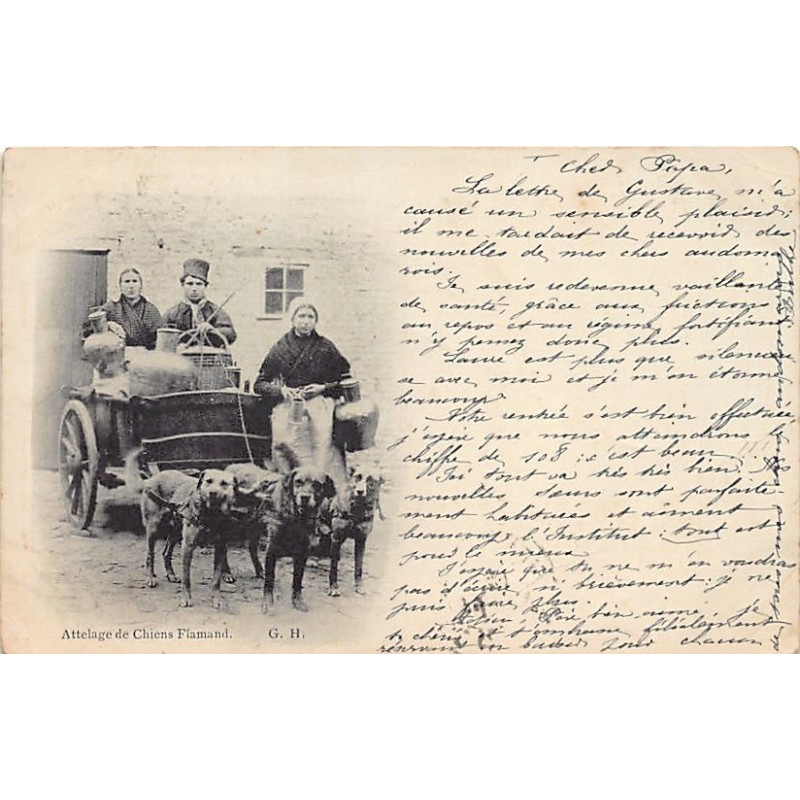 Cher Papa,
La lettre de Gustave m'a
causé un sensible plaisir;
il me tardait de recevoir des
nouvelles de mes chers audoma
rois.
Je suis redevenue vaillante
de santé, grâce aux frictions
au repos et au régime fortifiant
n'y pensez donc plus.
Laure est plus que silencieuse
avec moi et je m'en étonne
beaucoup.
Notre rentrée s'est bien effectuée
j'espère que nous atteindrons le
chiffre de 108 : c'est beau !!!
Ici tout va très très bien. Les
nouvelles Sœurs sont parfaite-
ment habituées et aiment
beaucoup l'Institut : tout est
pour le mieux.
J'espère que tu ne m'en voudras
pas d'écrire si brièvement : je ne
puis faire plus.
Adieu, Père bien-aimé, je
te chéris et t'embrasse filialement
réservant un baiser pour chacun
de
Attelage de Chiens Flamand. G. H.